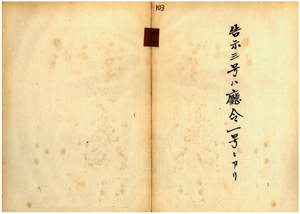 103
告示三号ハ廳令一号ニアリ